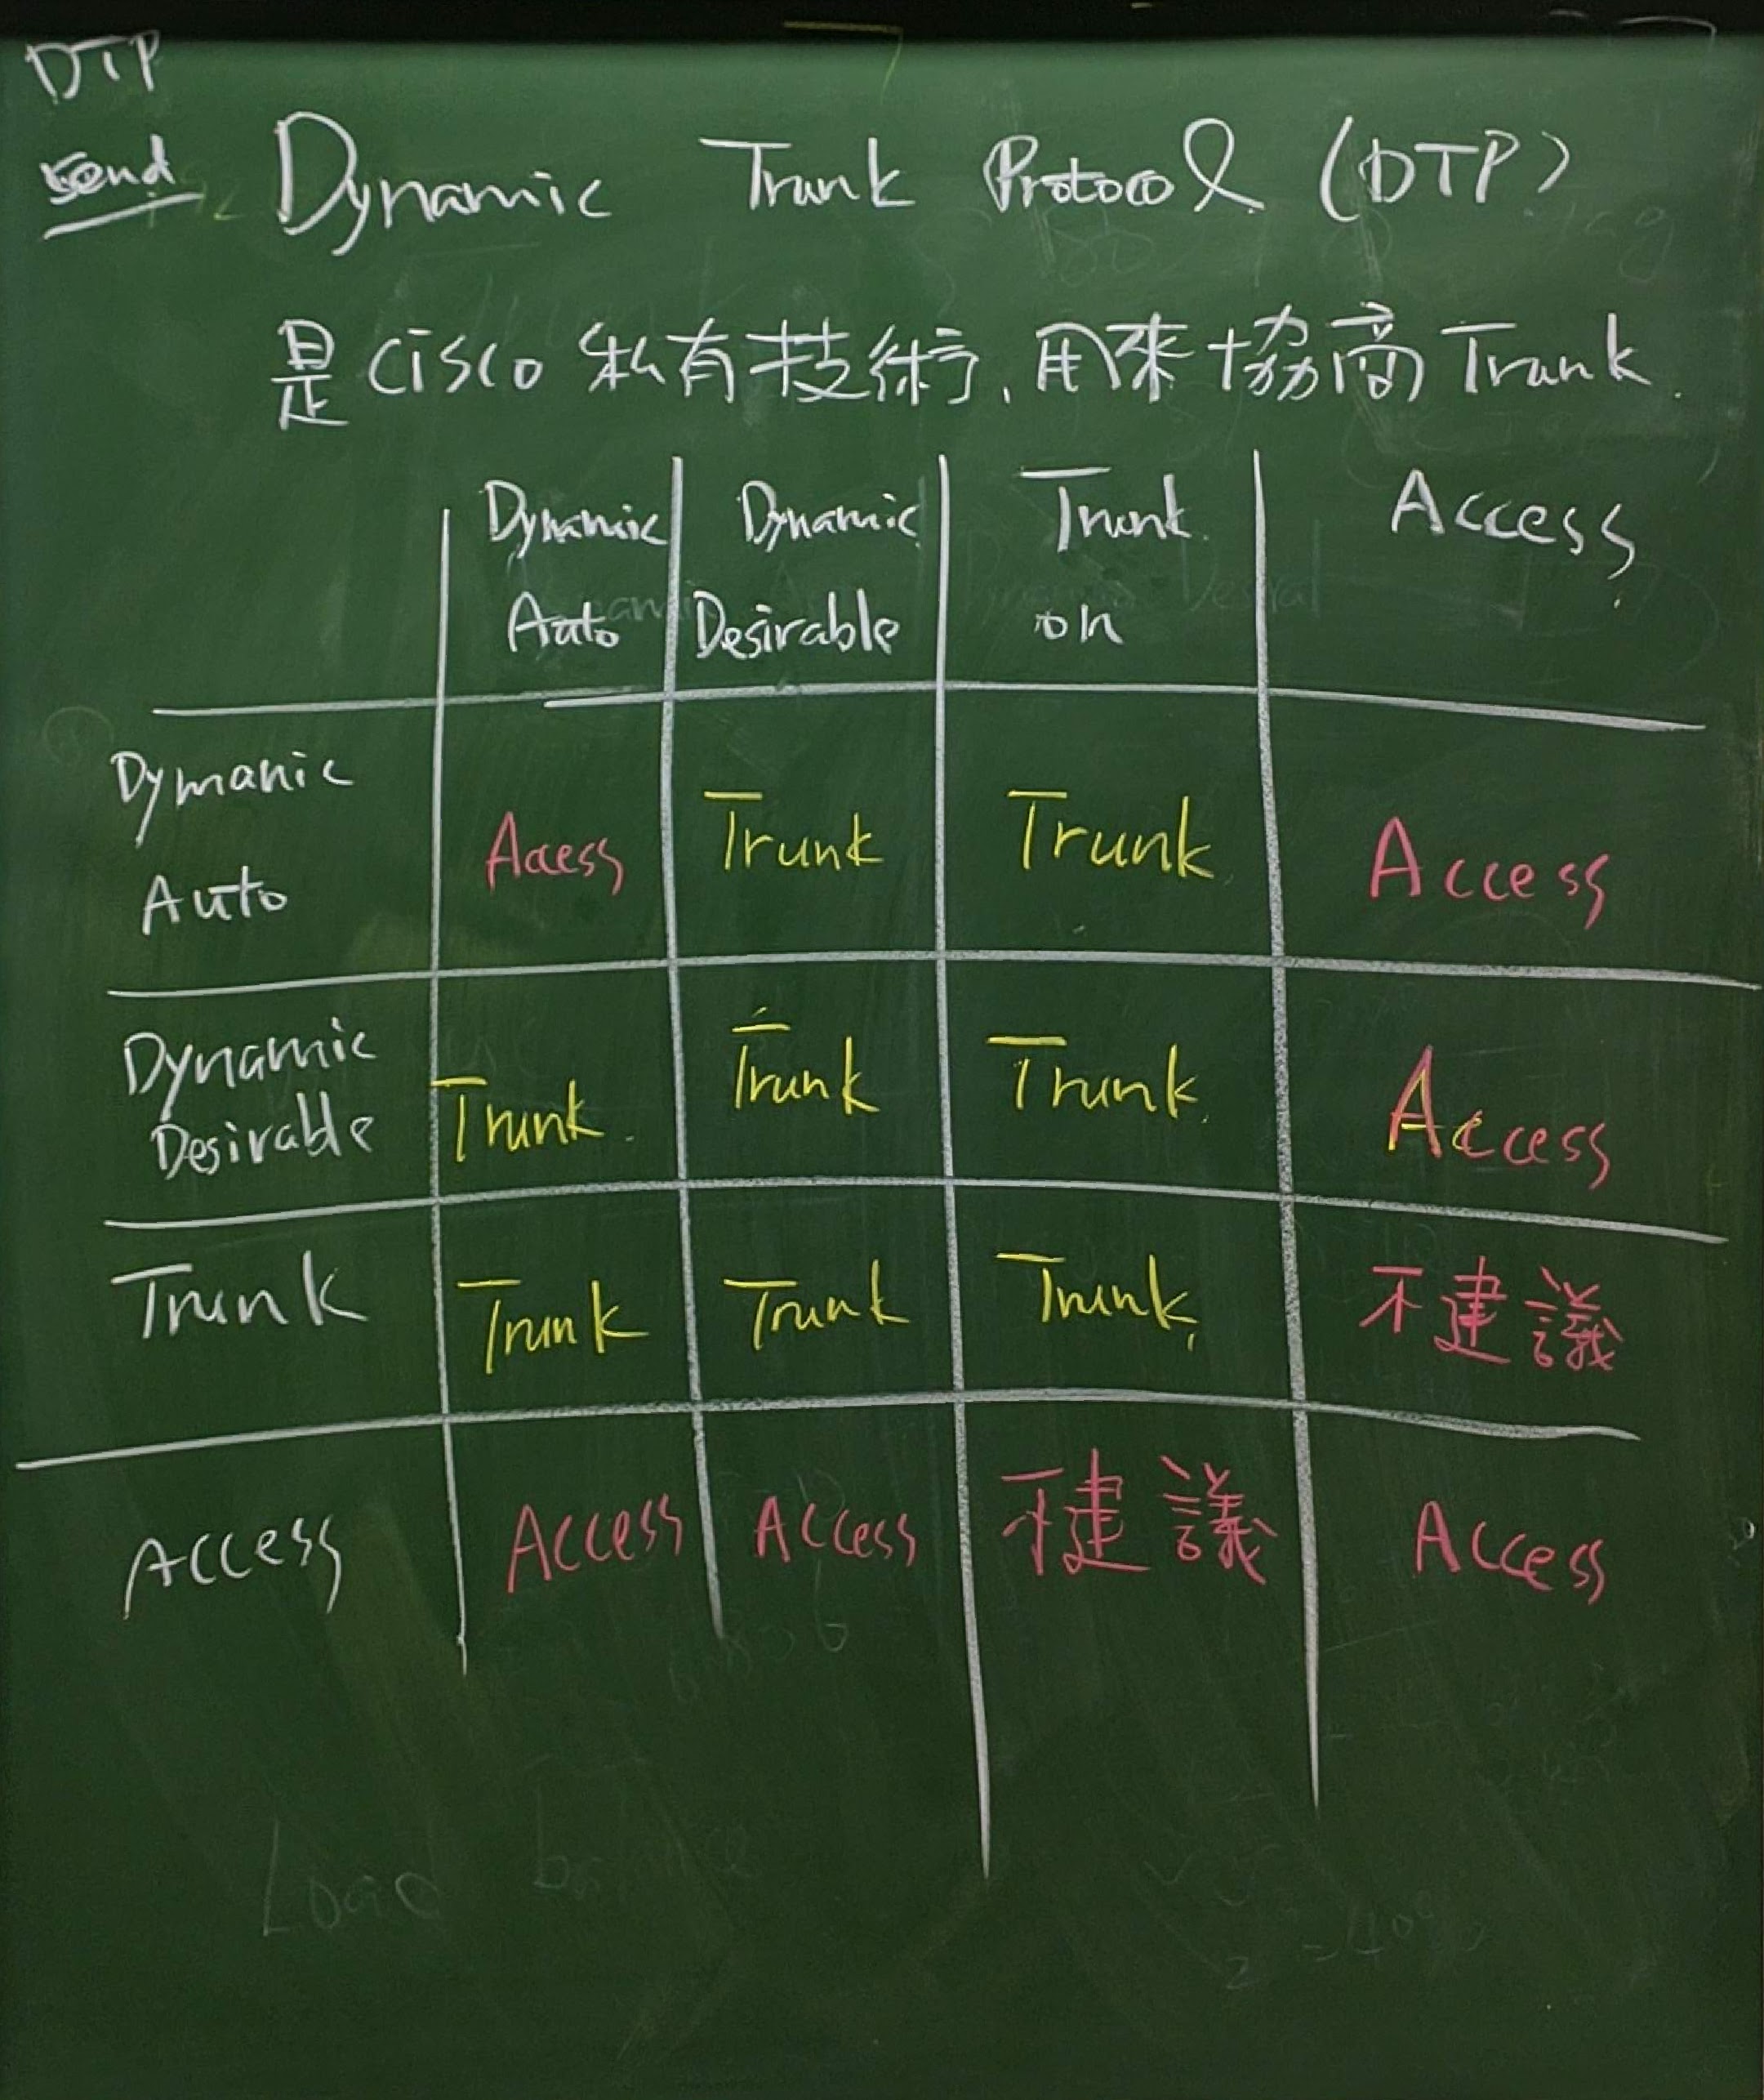 DTP
send
Dynamic Trunk Protocol (DTP)
是 Cisco 私有技術, 用來協商 Trunk.
Dynamic Auto Dynamic Desirable Trunk on Access
Dymanic Auto Access Trunk Trunk Access
Dynamic Desirable Trunk Trunk Trunk Access
Trunk Trunk Trunk Trunk 不建議
Access Access Access 不建議 Access
Load